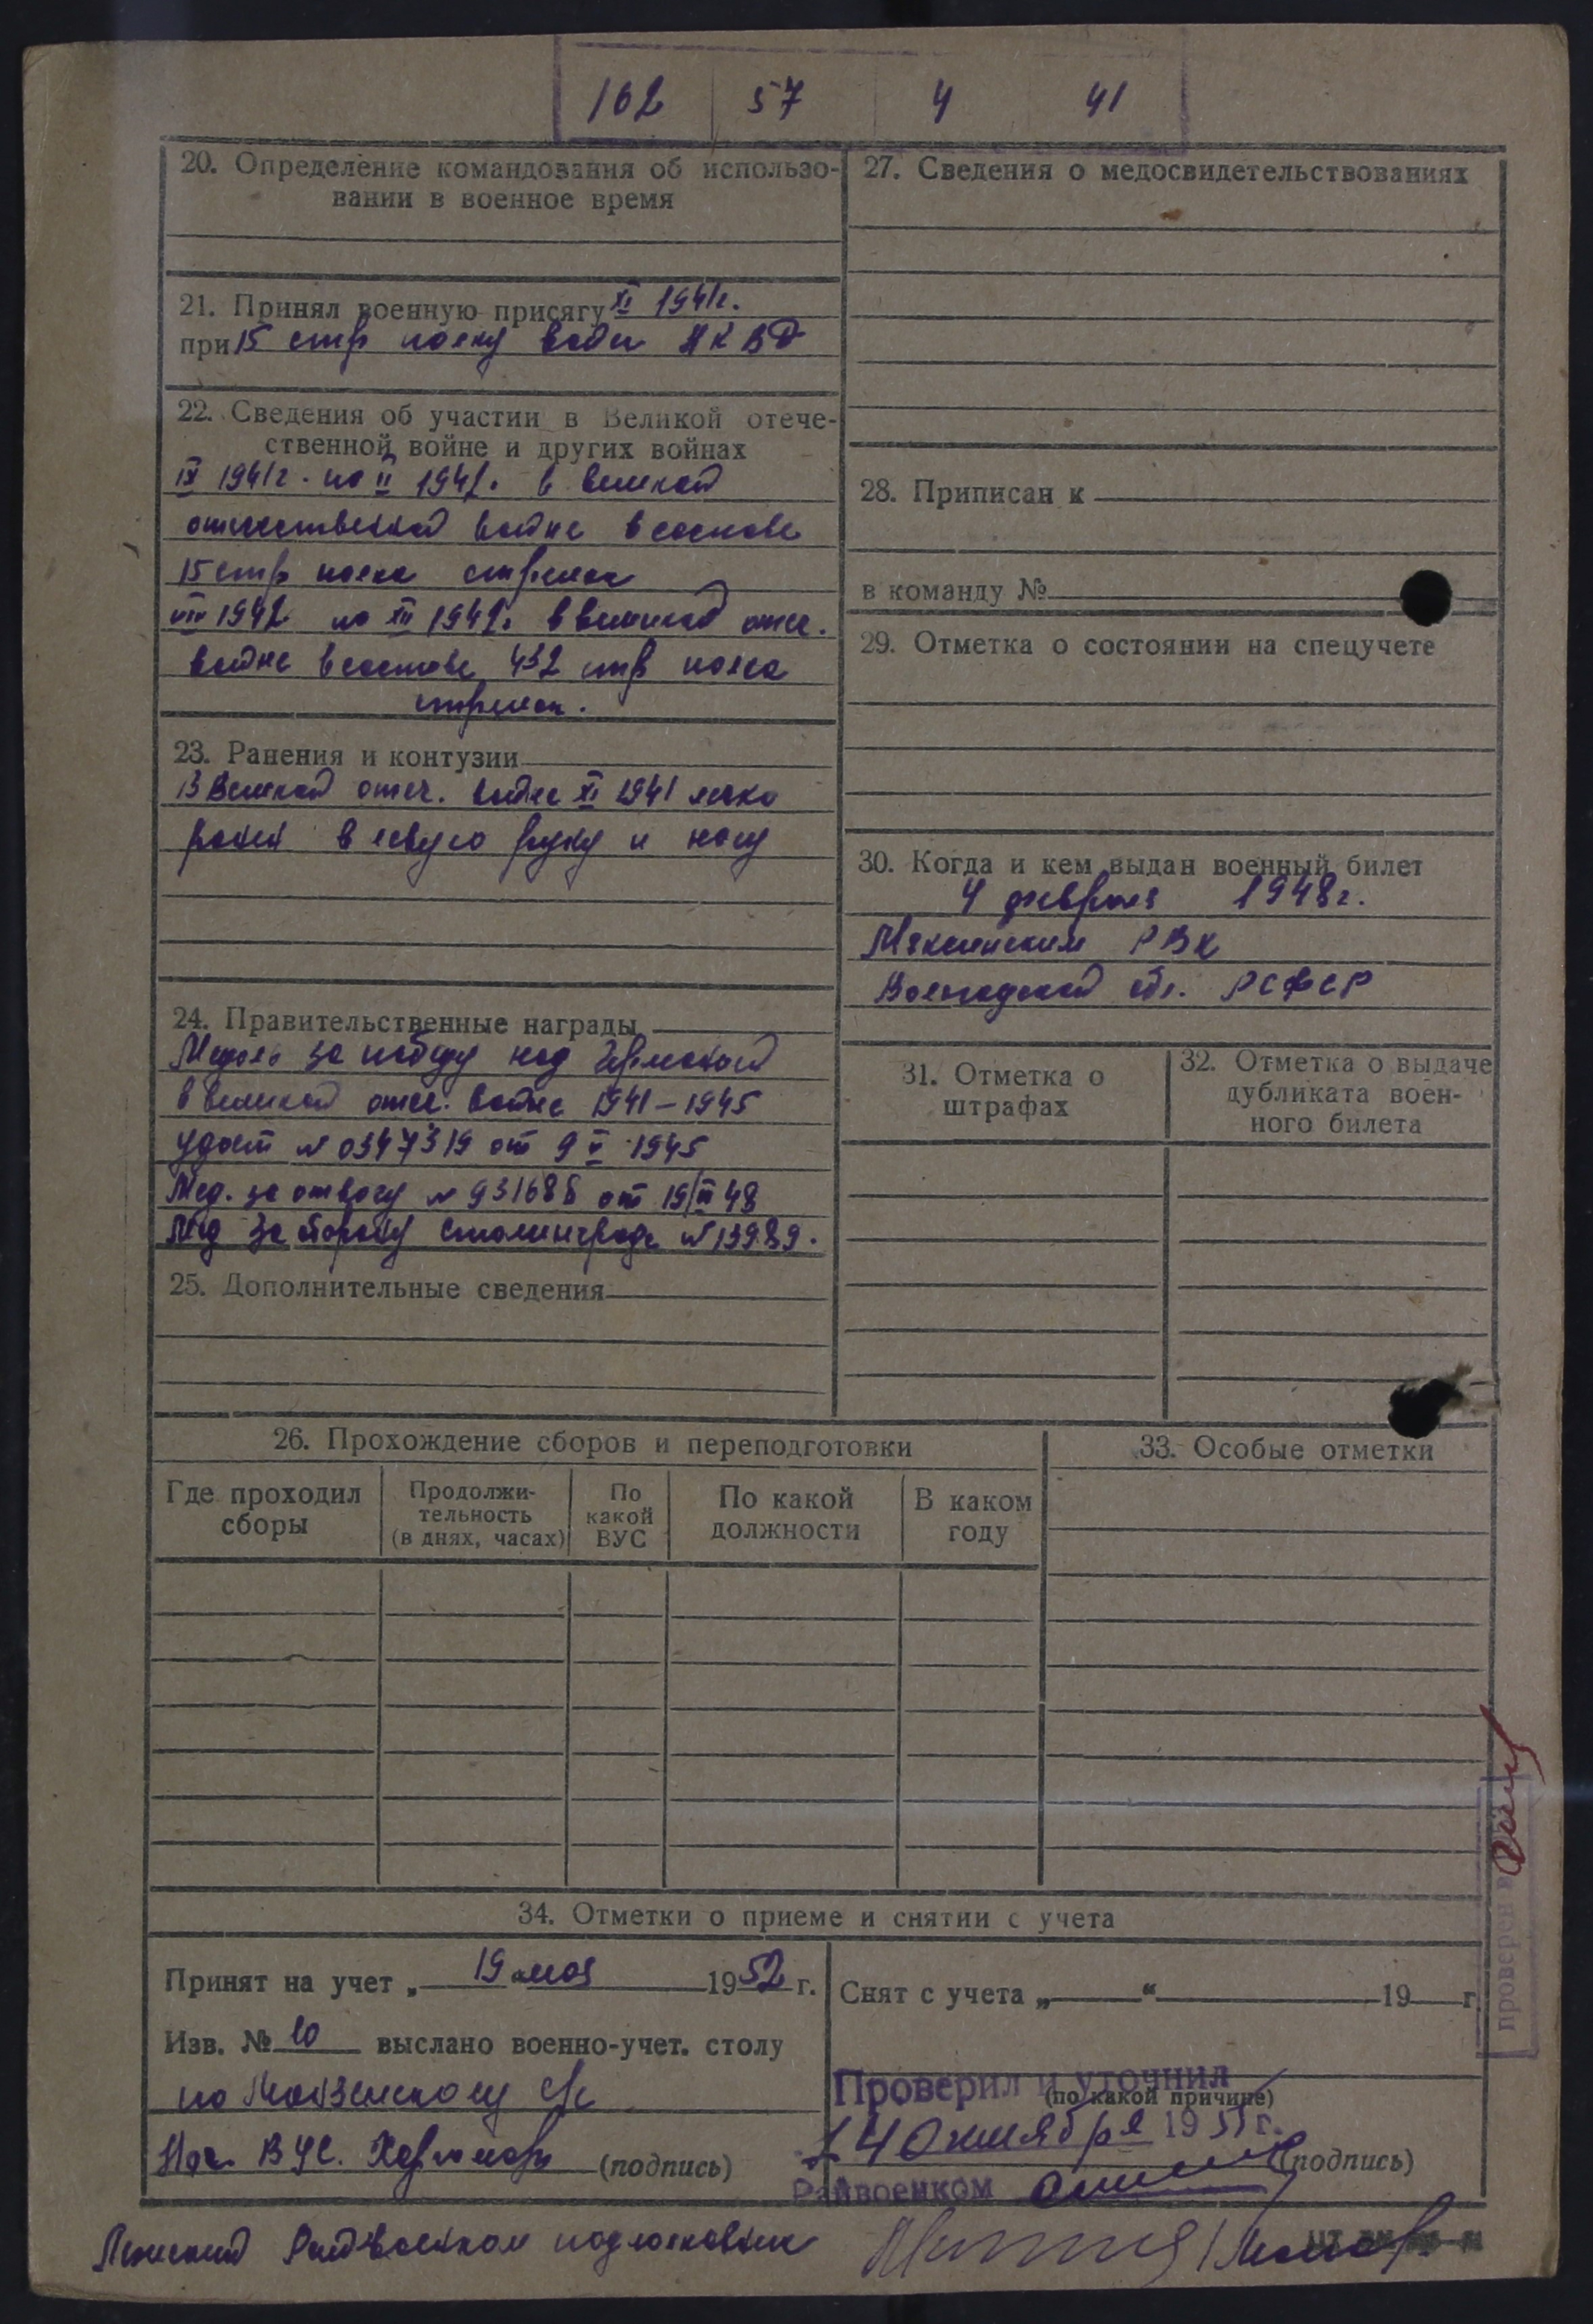 162 57 4 41
20. Определение командования об использо-
вании в военное время
21. Принял военную присягу XI 1941г.
при 15 стр полку войск НКВД
22. Сведения об участии в Великой отече-
ственной войне и других войнах
IX 1941г. по II 1942. в великой
отечественной войне в составе
15 стр полка стрелок
VIII 1942 по XII 1942. в великой отеч.
войне в составе 432 стр полка
стрелок.
23. Ранения и контузии
В Великой отеч. войне XI 1941 легко
ранен в левую руку и ногу
24. Правительственные награды
Медаль за победу над Германией
в великой отеч. войне 1941-1945
удост № 0347319 от 9 V 1945
Мед. за отвагу № 931688 от 19/III 48
Мед за оборону Сталинграда № 13989.
25. Дополнительные сведения
27. Сведения о медосвидетельствованиях
28. Приписан к
в команду №
29. Отметка о состоянии на спецучете
30. Когда и кем выдан военный билет
4 февраля 1948г.
Мяксинским РВК
Вологодской обл. РСФСР
31. Отметка о
штрафах
32. Отметка о выдаче
дубликата воен-
ного билета
26. Прохождение сборов и переподготовки
Где проходил
сборы
Продолжи-
тельность
(в днях, часах)
По
какой
ВУС
По какой
должности
В каком
году
33. Особые отметки
34. Отметки о приеме и снятии с учета
Принят на учет „ 19 " мая 1952 г.
Изв. № 10 выслано военно-учет. столу
по с/с
Нач. ВУС. (подпись)
Снят с учета „ “ 19 г.
(по какой причине)
Проверил и уточнил
14 Октября 1951 г.
(подпись)
Райвоенком
проверен в
Райвоенком подполковник